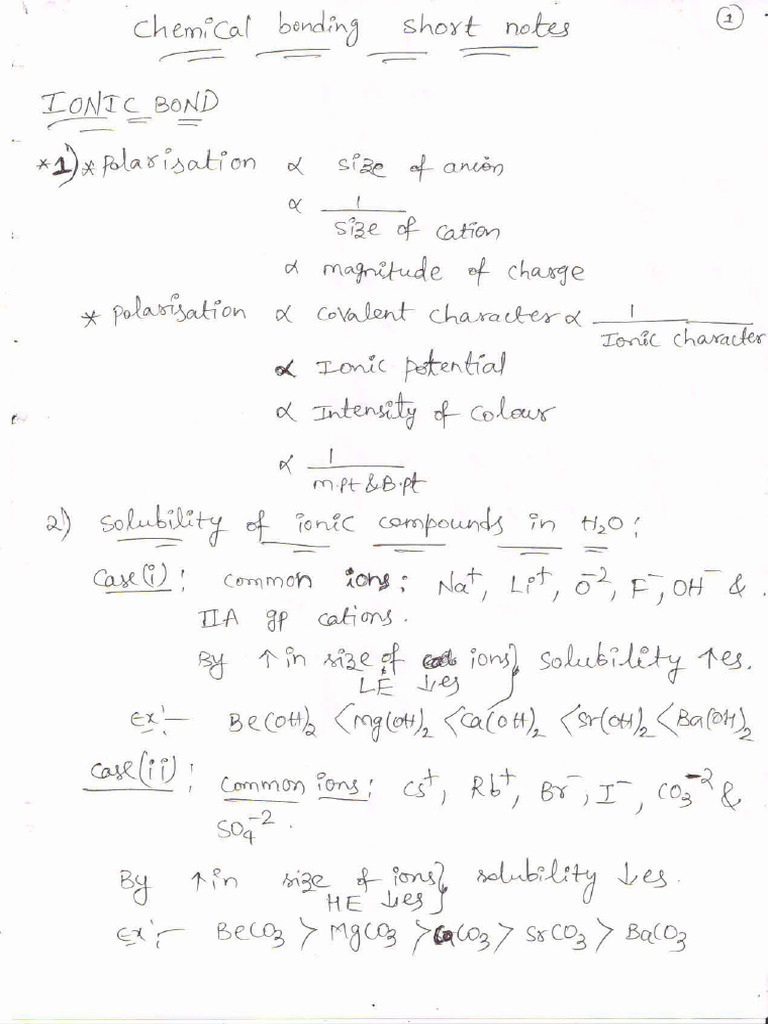 1
Chemical bonding short notes
IONIC BOND
*1) * Polarisation ∝ size of anion
∝ 1/size of cation
∝ magnitude of charge
* Polarisation ∝ covalent character ∝ 1/Ionic character
∝ Ionic potential
∝ Intensity of colour
∝ 1/m.pt & B.pt
2) Solubility of ionic compounds in H₂O:
Case(i): common ions: Na⁺, Li⁺, O⁻², F⁻, OH⁻ &
IIA gp cations.
By ↑ in size of ions} solubility ↑es.
LE ↓es
Ex:- Be(OH)₂ < Mg(OH)₂ < Ca(OH)₂ < Sr(OH)₂ < Ba(OH)₂
Case(ii): common ions: Cs⁺, Rb⁺, Br⁻, I⁻, CO₃⁻² &
SO₄⁻².
By ↑ in size of ions} solubility ↓es.
HE ↓es
Ex:- BeCO₃ > MgCO₃ > CaCO₃ > SrCO₃ > BaCO₃